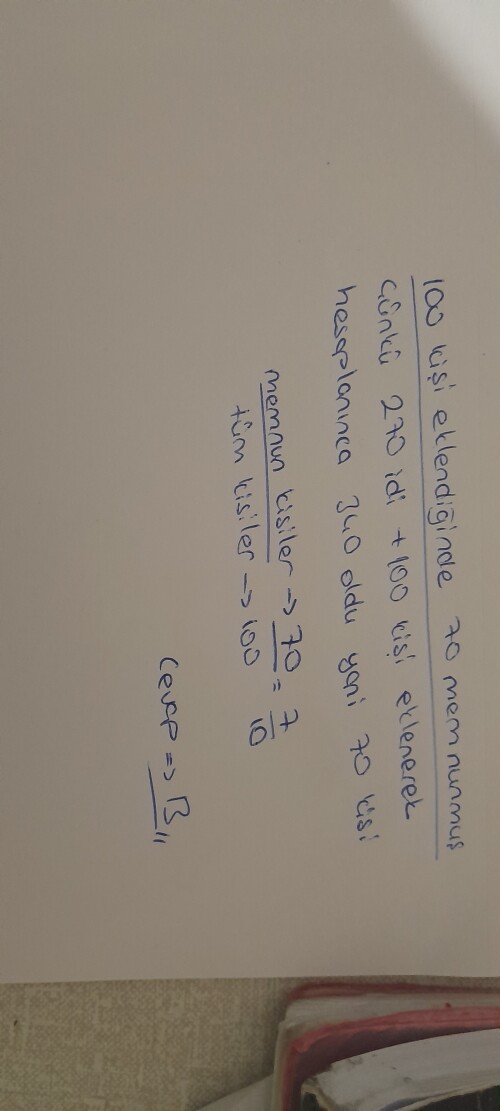 100 kişi eklendiğinde 70 memnunmuş
Çünkü 270 idi +100 kişi eklenerek
hesaplanınca 340 oldu yani 70 kişi
memnun kişiler → 70 = 7
tüm kişiler → 100 10
Cevap => B